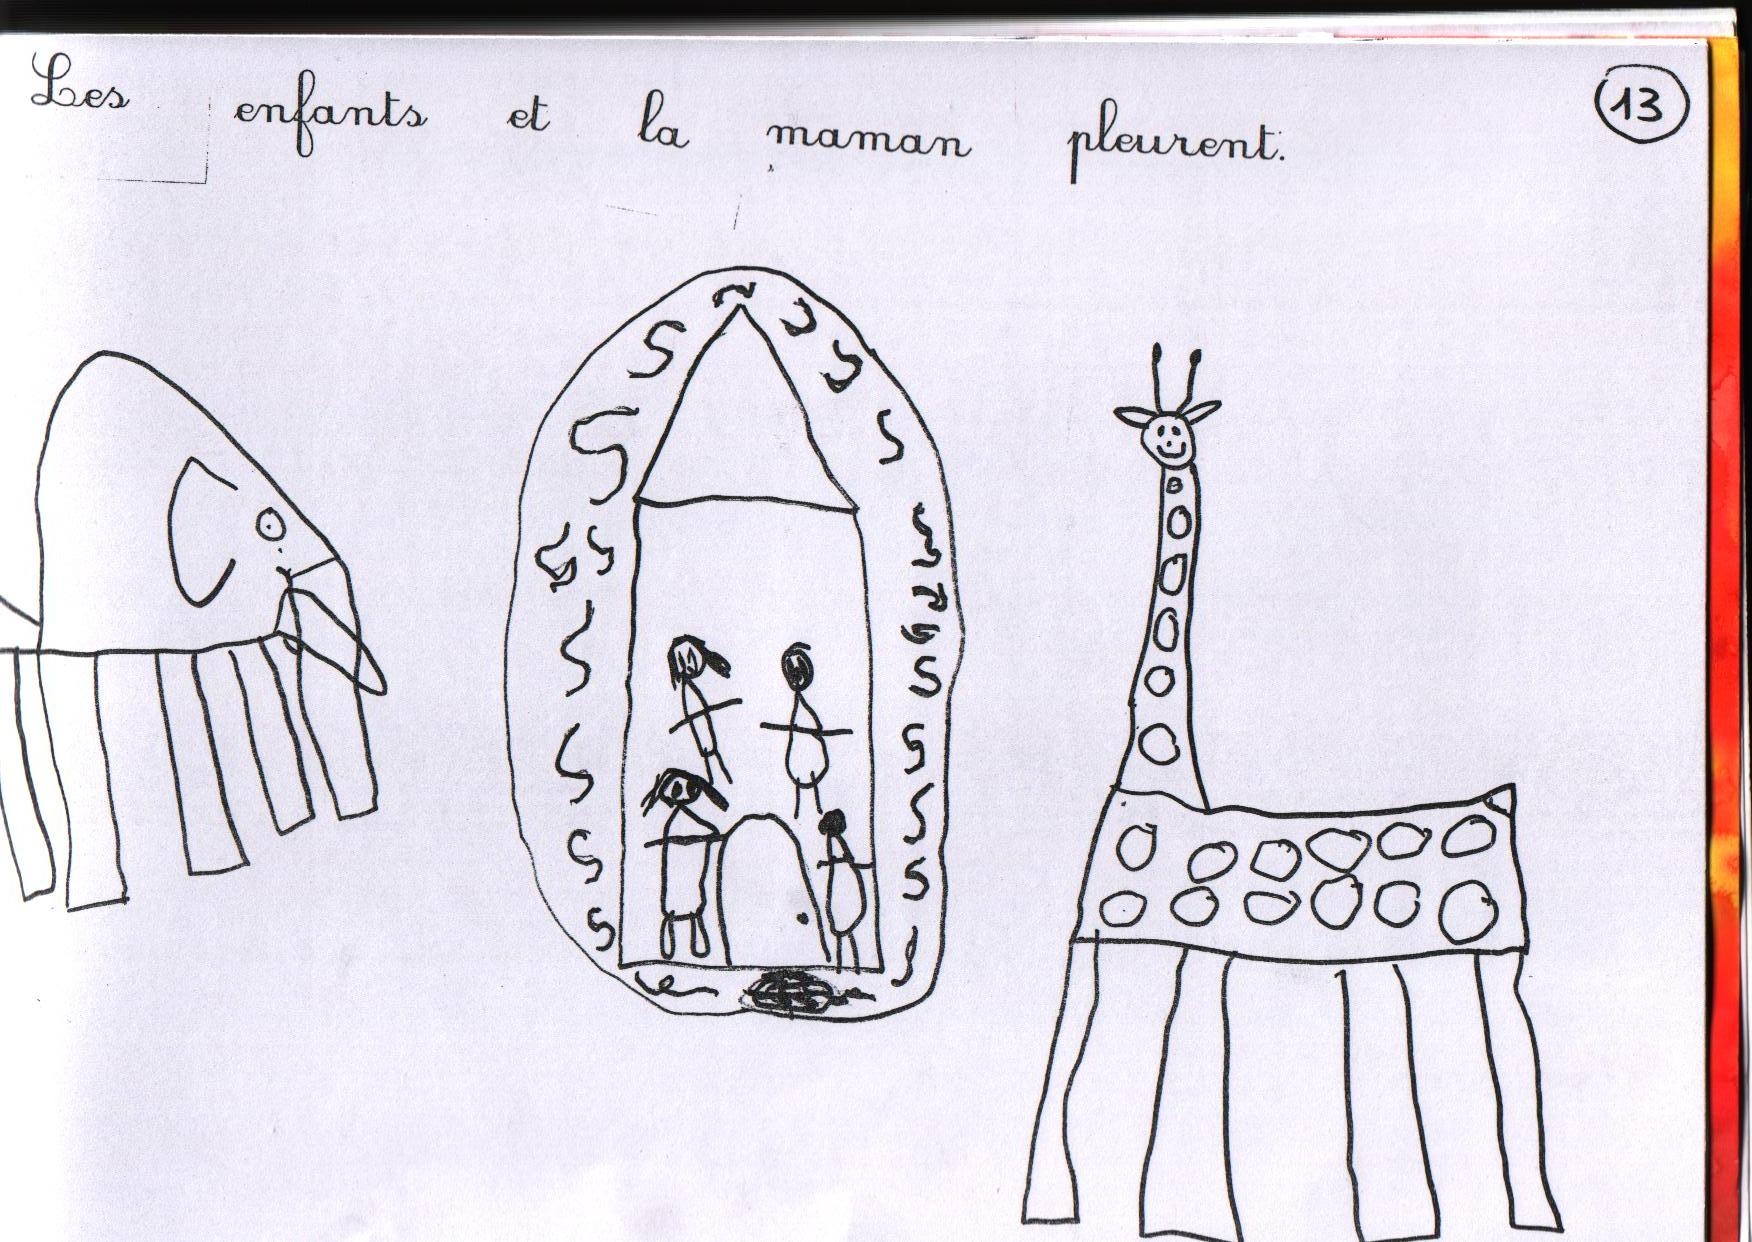 Les enfants et la maman pleurent.
13